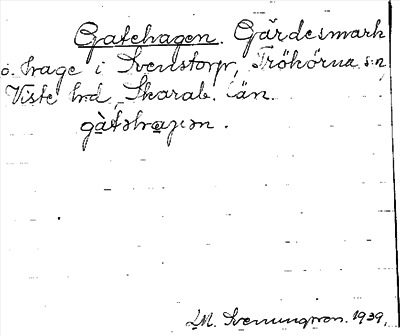 Gatehagen. Gärdesmark
o. hage i Svenstorp, Trökörna s:n,
Viste hd, Skarab. län.
gàtəhagən.
LM. Svenungsson. 1939.